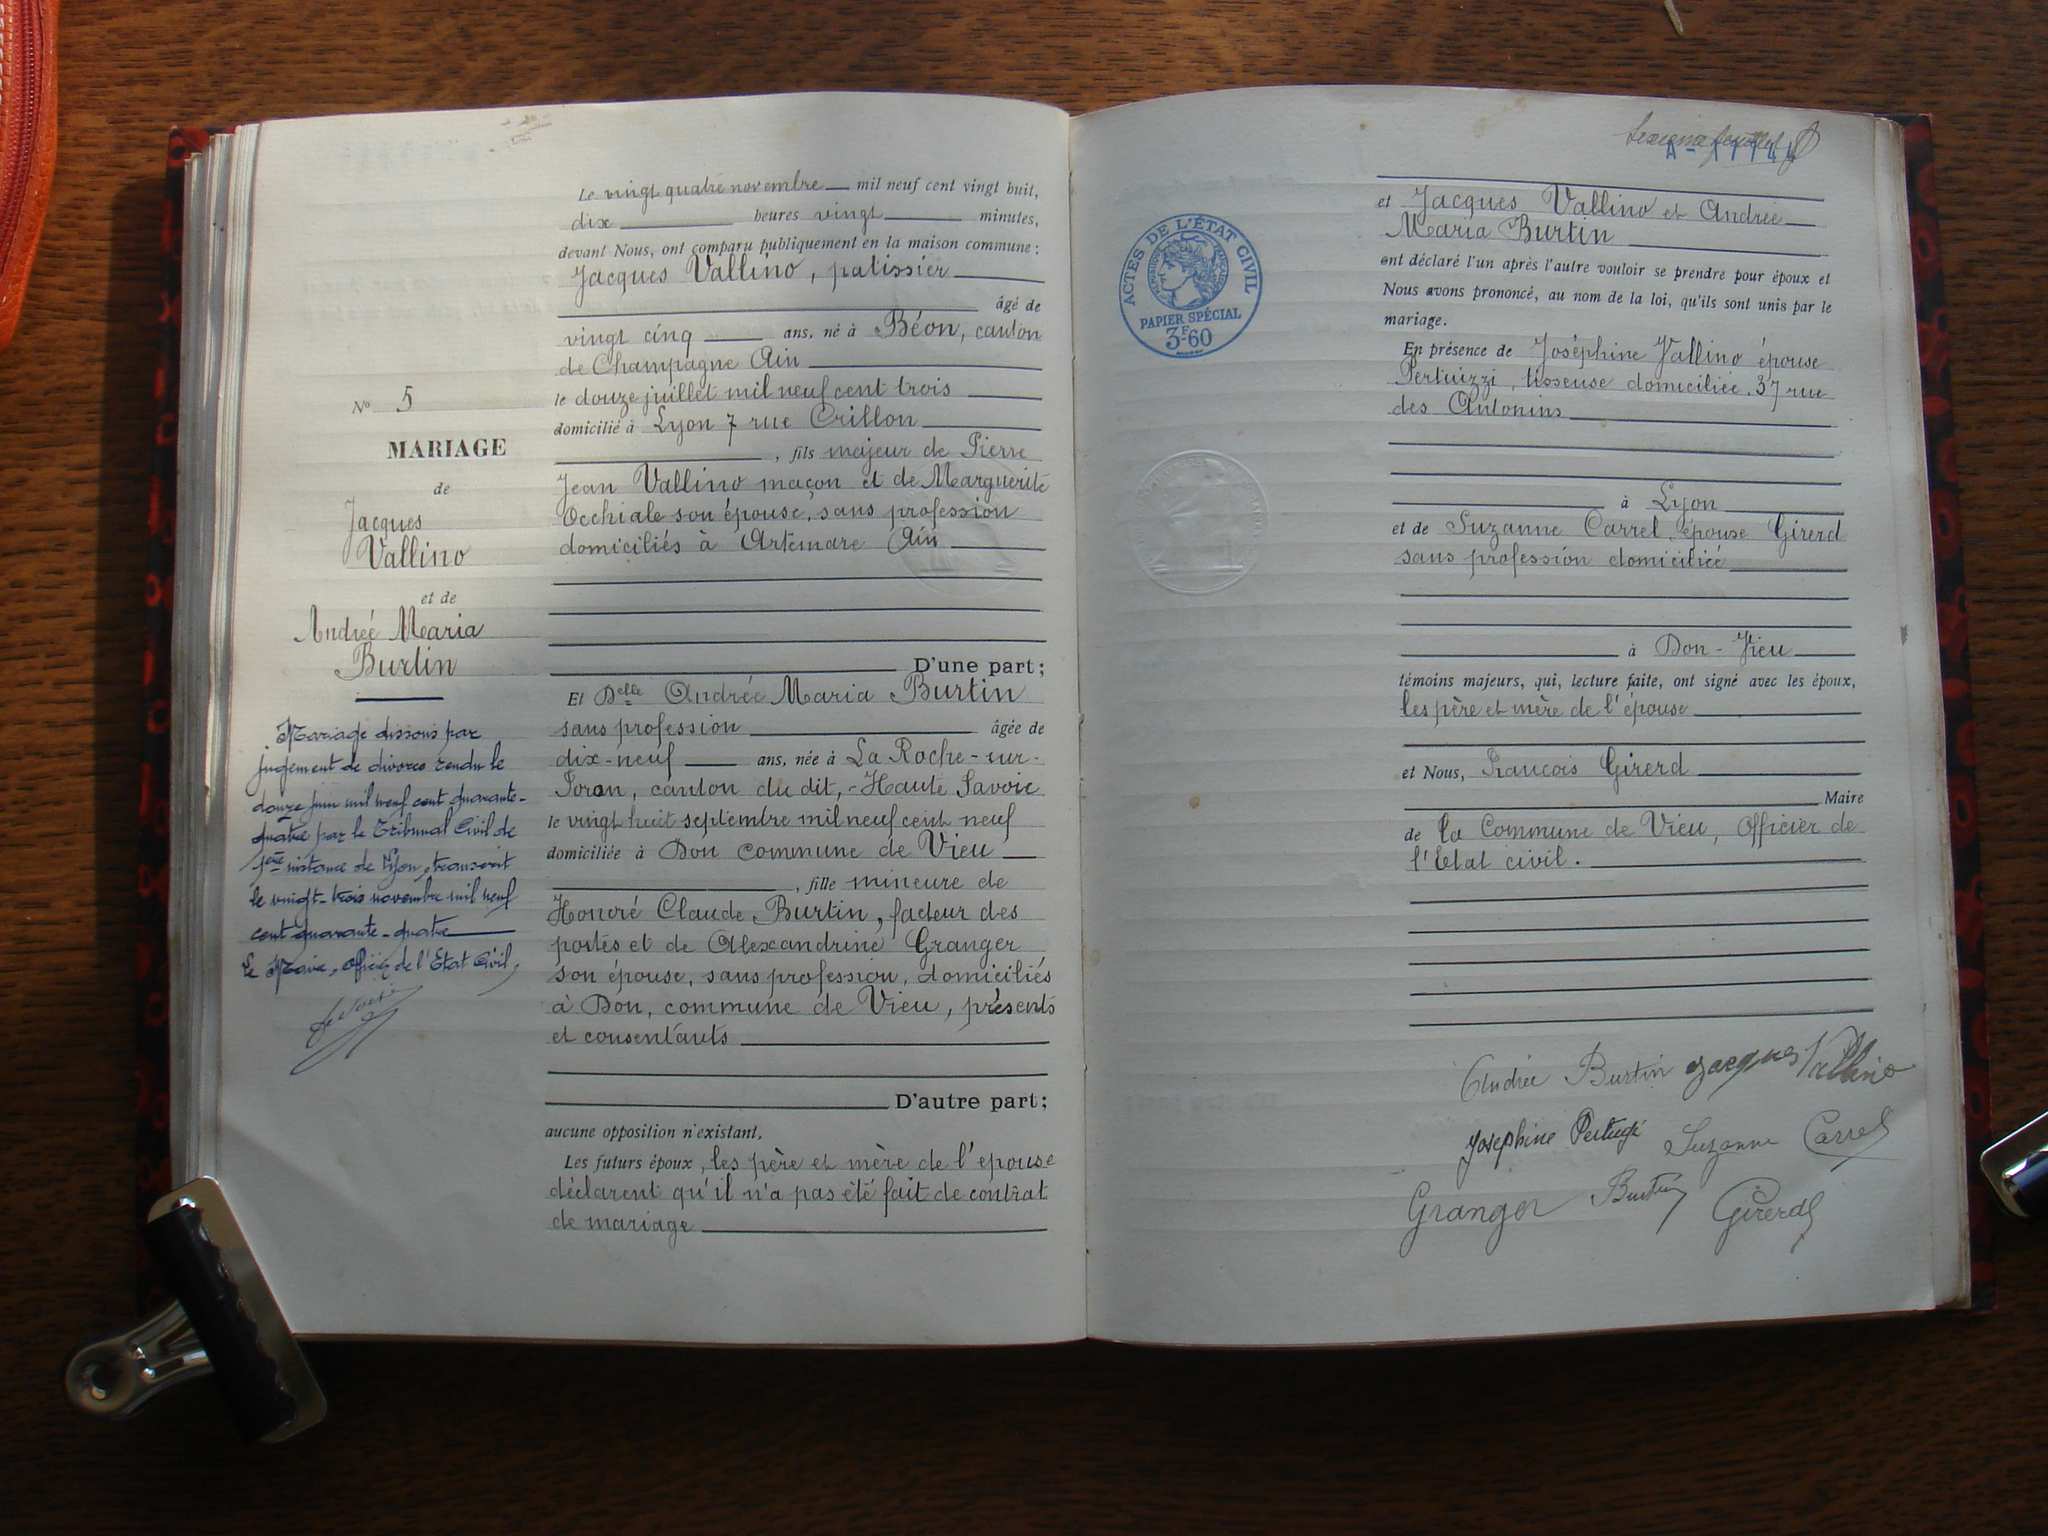 N° 5
MARIAGE
de
Jacques
Vallino
et de
Andrée Maria
Burtin
Mariage dissous par
jugement de divorce rendu le
douze juin mil neuf cent quarante-
quatre par le Tribunal Civil de
1ère instance de Lyon, transcrit
le vingt-trois novembre mil neuf
cent quarante-quatre
Le Maire, officier de l'Etat Civil,
Le vingt quatre novembre mil neuf cent vingt huit,
dix heures vingt minutes,
devant Nous, ont comparu publiquement en la maison commune :
Jacques Vallino, patissier
âgé de
vingt cinq ans, né à Béon, canton
de Champagne Ain
le douze juillet mil neuf cent trois
domicilié à Lyon 7 rue Crillon
, fils majeur de Pierre
Jean Vallino maçon et de Marguerite
Occhiale son épouse, sans profession
domiciliés à Artemare Ain
D'une part ;
Et Delle Andrée Maria Burtin
sans profession âgée de
dix-neuf ans, née à La Roche-sur-
Foron, canton du dit, - Haute Savoie
le vingt huit septembre mil neuf cent neuf
domiciliée à Don commune de Vieu
, fille mineure de
Honoré Claude Burtin, facteur des
postes et de Alexandrine Granger
son épouse, sans profession, domiciliés
à Don, commune de Vieu, présents
et consentants
D'autre part ;
aucune opposition n'existant.
Les futurs époux, les père et mère de l'epouse
déclarent qu'il n'a pas été fait de contrat
de mariage
ACTES DE L'ÉTAT CIVIL
RÉPUBLIQUE FRANÇAISE
PAPIER SPÉCIAL
3F60
et Jacques Vallino et Andrée
Maria Burtin
ont déclaré l'un après l'autre vouloir se prendre pour époux et
Nous avons prononcé, au nom de la loi, qu'ils sont unis par le
mariage.
En présence de Joséphine Vallino épouse
Pertuizzi, tisseuse domiciliée. 37 rue
des Antonins
à Lyon
et de Suzanne Carrel, épouse Girerd
sans profession domiciliée
à Don-Vieu
témoins majeurs, qui, lecture faite, ont signé avec les époux,
les père et mère de l'épouse
et Nous, François Girerd
Maire
de la Commune de Vieu, Officier de
l'Etat civil.
Andrée Burtin Jacques Vallino
Josephine Suzanne Carrel
Granger Burtin Girerd